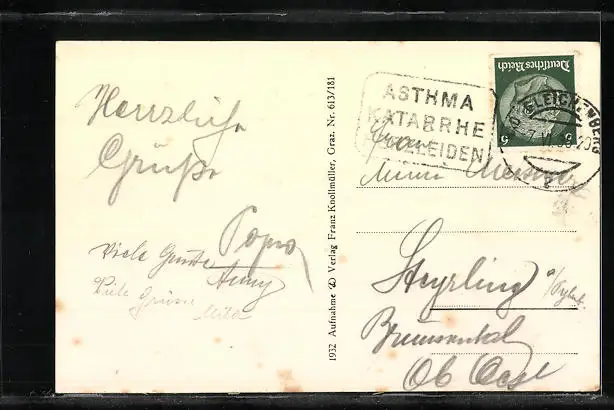 Herzliche
Grüße
Papa
Viele Grüße
Anny
Viele Grüsse
1932 Aufnahme & Verlag Franz Knollmüller, Graz. Nr. 613/181
ASTHMA
KATARRHE
LEIDEN
Deutsches Reich
5 5
GLEICHENBERG
Frau
Steyrling
Brunnental
Ob Oest